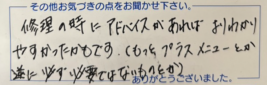 その他お気づきの点をお聞かせ下さい。
修理の時にアドバイスがあればよりわかり
やすかったかもです。(もっとプラスメニューとか
逆に必ず必要ではないものとか)
ありがとうございました。